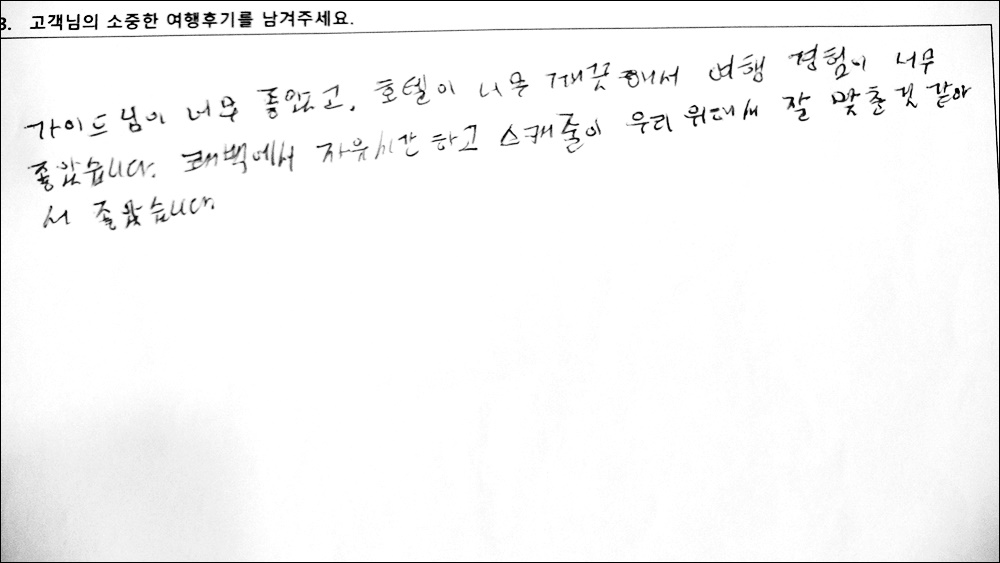 3. 고객님의 소중한 여행후기를 남겨주세요.
가이드님이 너무 좋았고, 호텔이 너무 깨끗해서 여행 경험이 너무
좋았습니다. 쾌백에서 자유시간하고 스캐줄이 우리 위대새 잘 맞춘것 같아
서 좋았습니다.